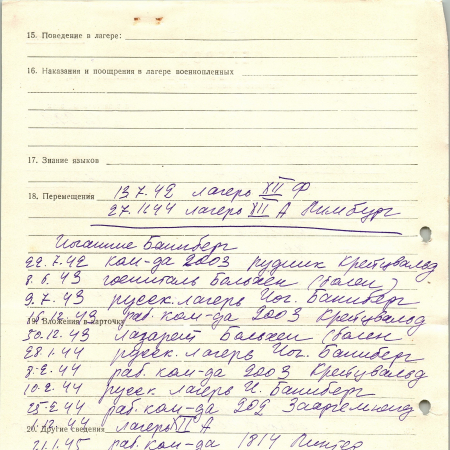 15. Поведение в лагере:
16. Наказания и поощрения в лагере военнопленных
17. Знание языков
18. Перемещения 13.7.42 лагерь XII Ф
27.11.44 лагерь XII А Лимбург
Иоганнис Баннберг
22.7.42 ком-да 2003 рудник Крейцвальд
8.6.43 госпиталь Больхен (Болен)
9.7.43 русск. лагерь Иог. Баннберг
15.12.43 раб. ком-да 2003 Крейцвальд
19. Вложения в карточку
30.12.43 лазарет Больхен (Болен
28.1.44 русск. лагерь Иог. Баннберг
8.2.44 раб. ком-да 2003 Крейцвальд
10.2.44 русск лагерь И. Баннберг
25.2.44 раб. ком-да 202 Зааргемюнд
12.44 лагерь II А
20. Другие сведения
21.1.45 раб. ком-да 1814